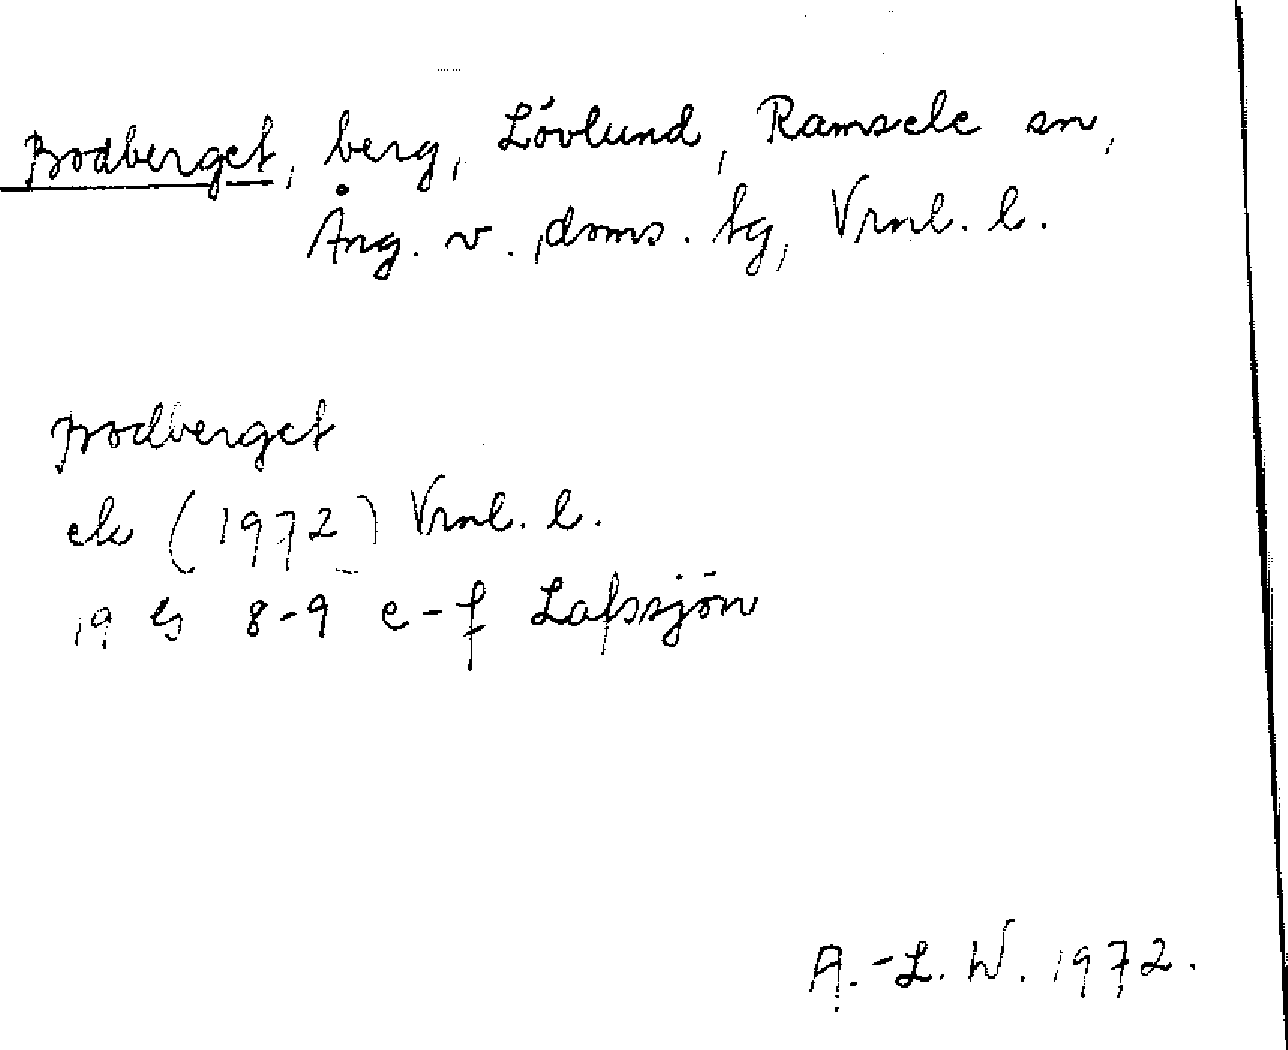 Bodberget, berg, Lövlund, Ramsele sn,
Ång. v. doms. tg, Vrnl. l.
Bodberget
ek (1972) Vrnl. l.
19 G 8-9 e-f Lafssjön
A.-L. W. 1972.